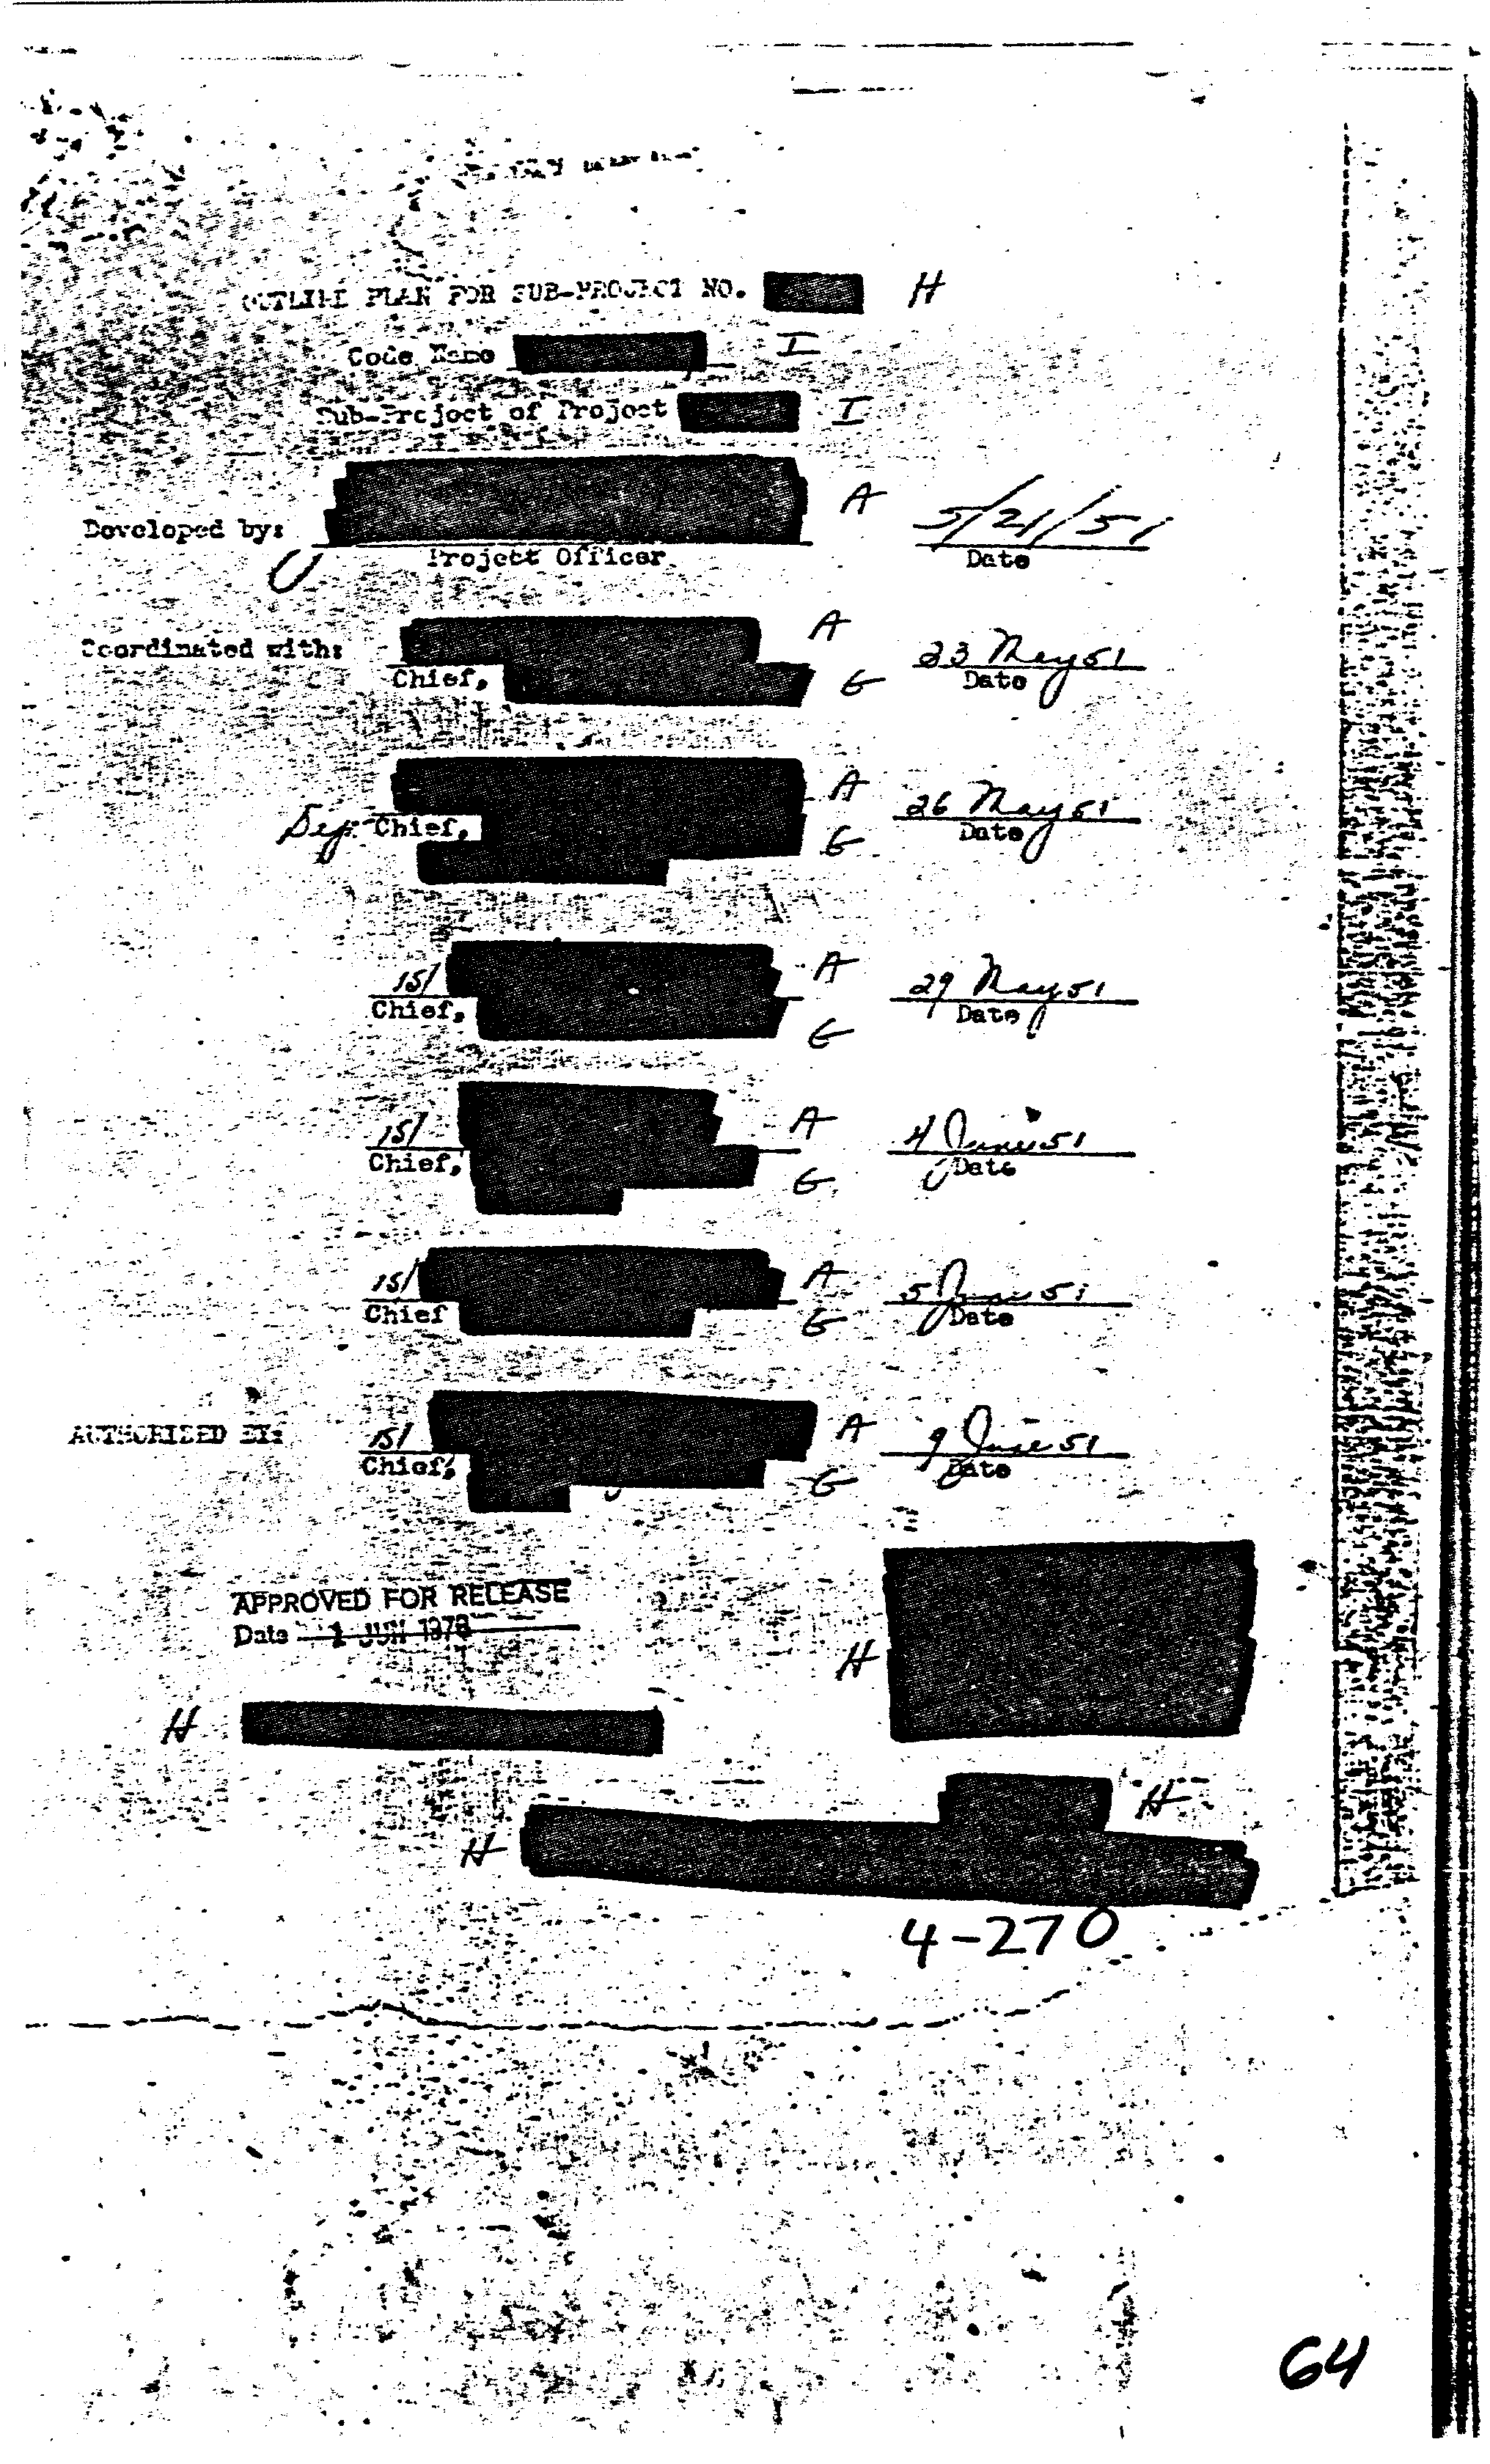 OUTLINE PLAN FOR SUB-PROJECT NO. H
Code Name I
Sub-Project of Project I
Developed by: A 5/21/51
Project Officer Date
Coordinated with: A 23 May 51
Chief, G Date
A 26 May 51
Dep. Chief, G Date
/s/ A 29 May 51
Chief, G Date
/s/ A 4 June 51
Chief, G Date
/s/ A 5 June 51
Chief G Date
AUTHORIZED BY: /s/ A 9 June 51
Chief, G Date
APPROVED FOR RELEASE
Date 1 JUN 1978
H
H
H
H
4-270
64